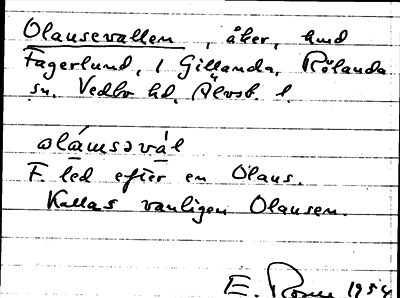 Olausevallen, åker, hmd
Fagerlund, 1 Gillanda, Rölanda
sn. Vedbo hd, Älvsb. l.
olámsəvál
F. led efter en Olaus.
Kallas vanligen Olausen.
E. 1954